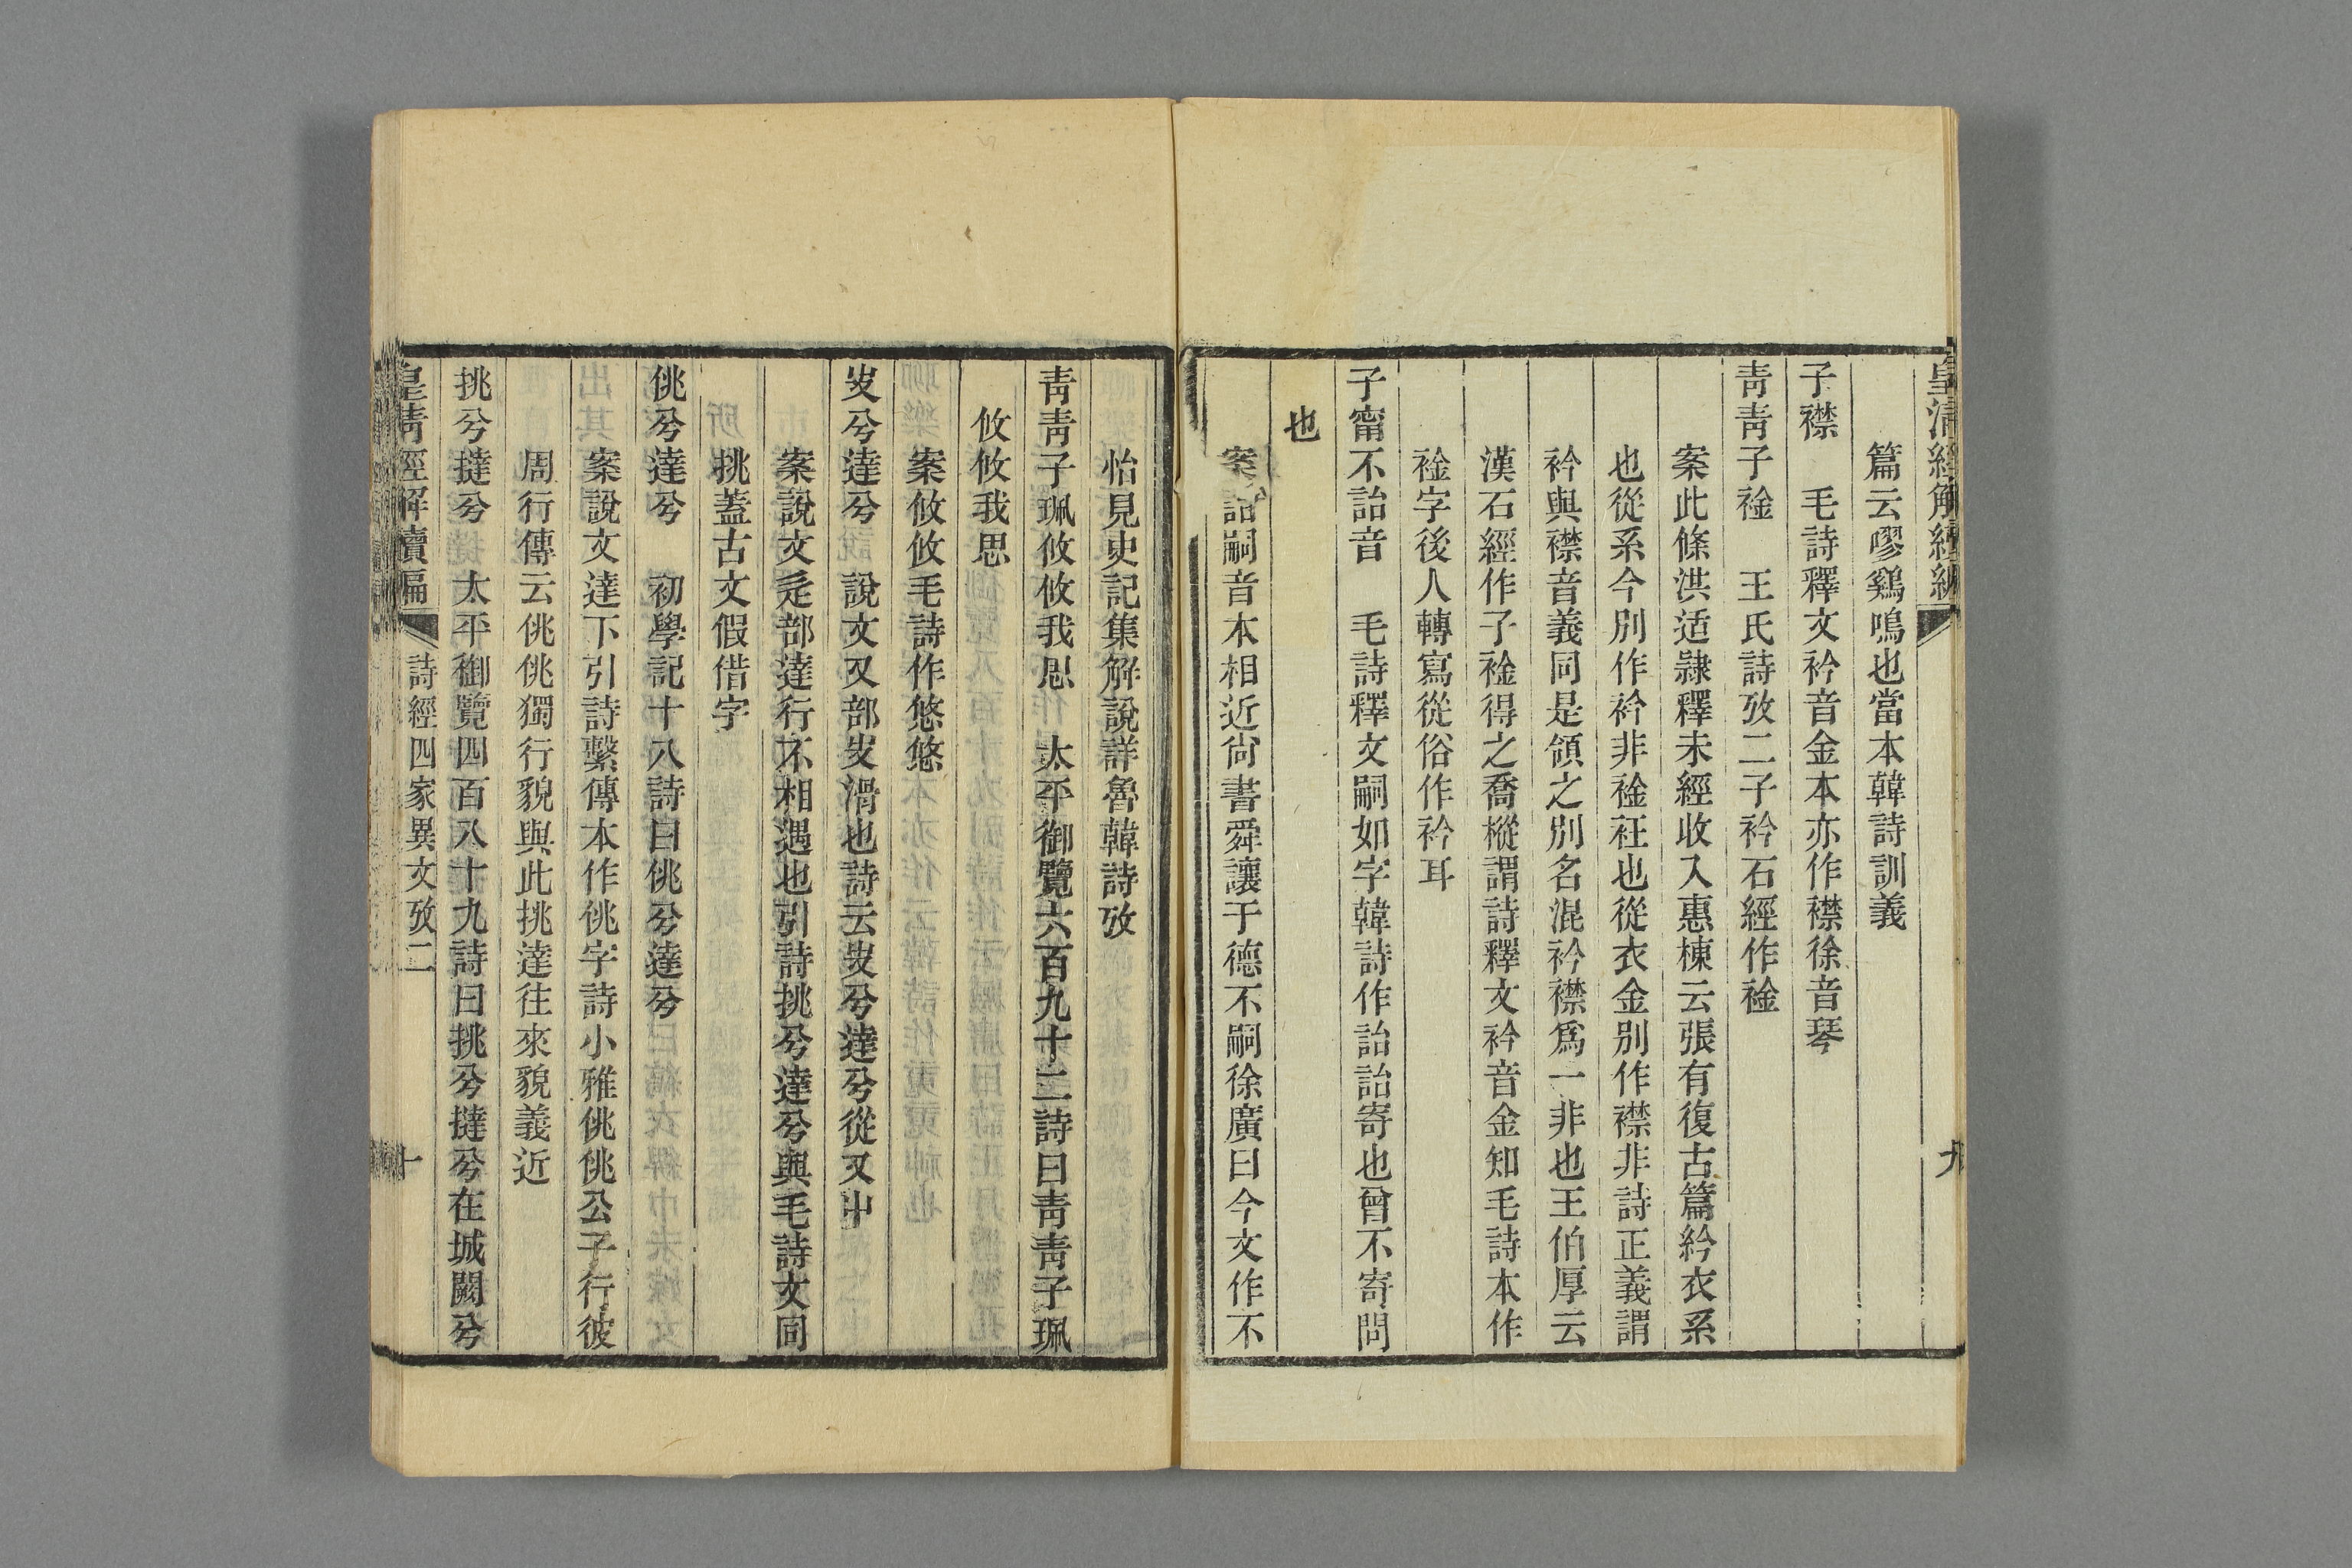 皇清經解續編
九
篇云嘐鷄鳴也當本韓詩訓義
子襟　毛詩釋文衿音金本亦作襟徐音琴
靑靑子䘳　王氏詩攷二子衿石經作䘳
案此條洪适隷釋未經收入惠棟云張有復古篇紟衣系
也從系今別作衿非䘳衽也從衣金別作襟非詩正義謂
衿與襟音義同是領之別名混衿襟爲一非也王伯厚云
漢石經作子䘳得之喬樅謂詩釋文衿音金知毛詩本作
䘳字後人轉寫從俗作衿耳
子甯不詒音　毛詩釋文嗣如字韓詩作詒詒寄也曾不寄問
也
案詒嗣音本相近尙書舜讓于德不嗣徐廣曰今文作不
怡見史記集解說詳魯韓詩攷
靑靑子珮攸攸我思　太平御覽六百九十二詩曰靑靑子珮
攸攸我思
案攸攸毛詩作悠悠
㕞兮達兮　說文又部㕞滑也詩云㕞兮達兮從又屮
案說文辵部達行不相遇也引詩挑兮達兮與毛詩文同
挑蓋古文假借字
佻兮達兮　初學記十八詩曰佻兮達兮
案說文達下引詩繫傳本作佻字詩小雅佻佻公子行彼
周行傳云佻佻獨行貌與此挑達往來貌義近
挑兮撻兮　太平御覽四百八十九詩曰挑兮撻兮在城闕兮
皇淸經解續編
詩經四家異文攷二
十